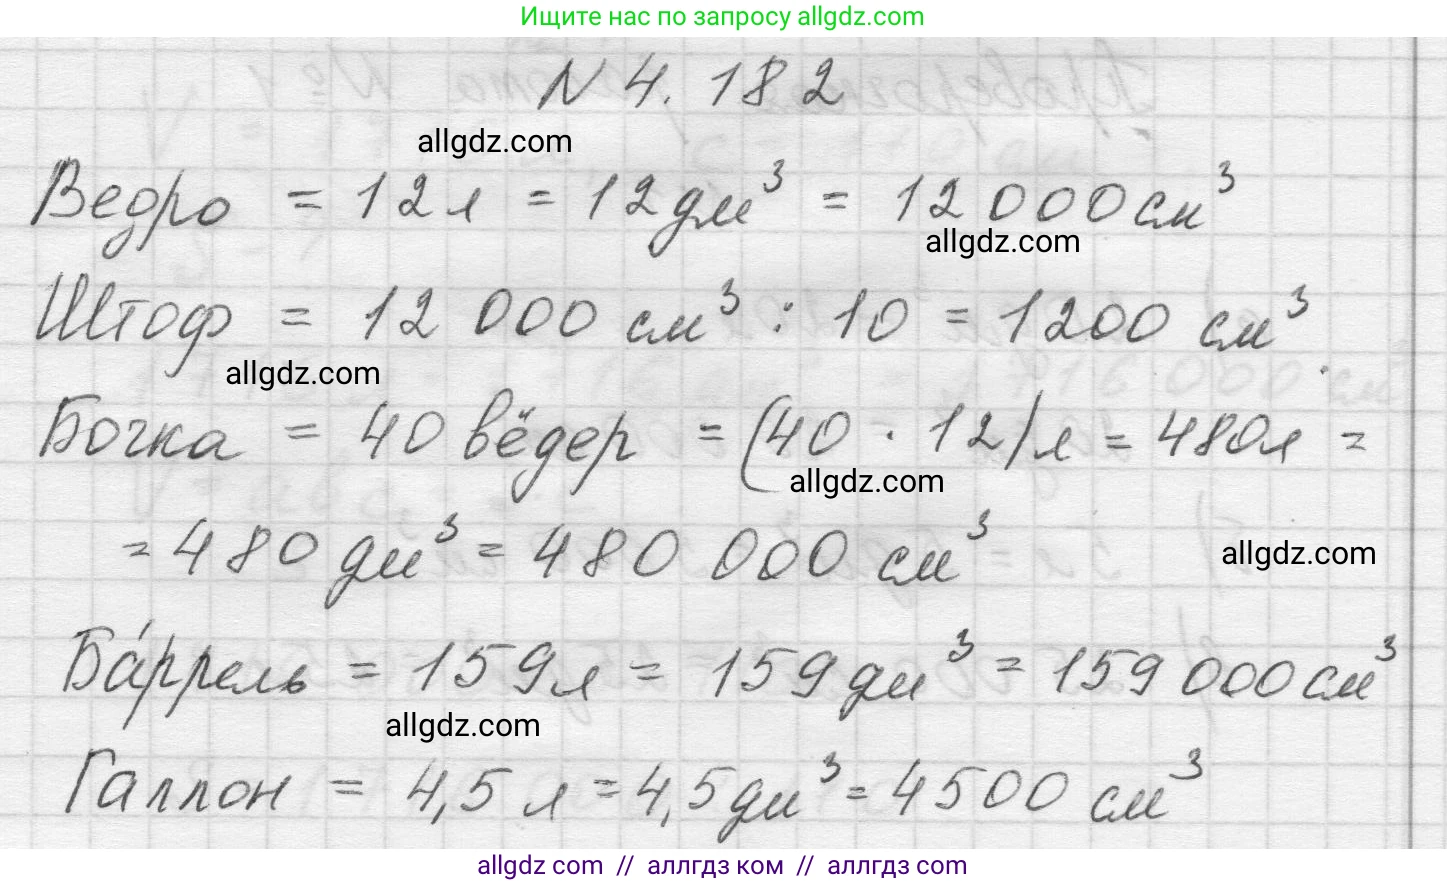 Ищите нас по запросу allgdz.com
N 4. 182
allgdz.com
Ведро = 12 л = 12 дм³ = 12 000 см³
allgdz.com
Штоф = 12 000 см³ : 10 = 1200 см³.
allgdz.com
Бочка = 40 вёдер = (40 · 12) л = 480 л =
allgdz.com
= 480 дм³ = 480 000 см³
allgdz.com
Ба́ррель = 159 л = 159 дм³ = 159 000 см³
allgdz.com
Галлон = 4,5 л = 4,5 дм³ = 4500 см³
allgdz com // аллгдз ком // аллгдз com